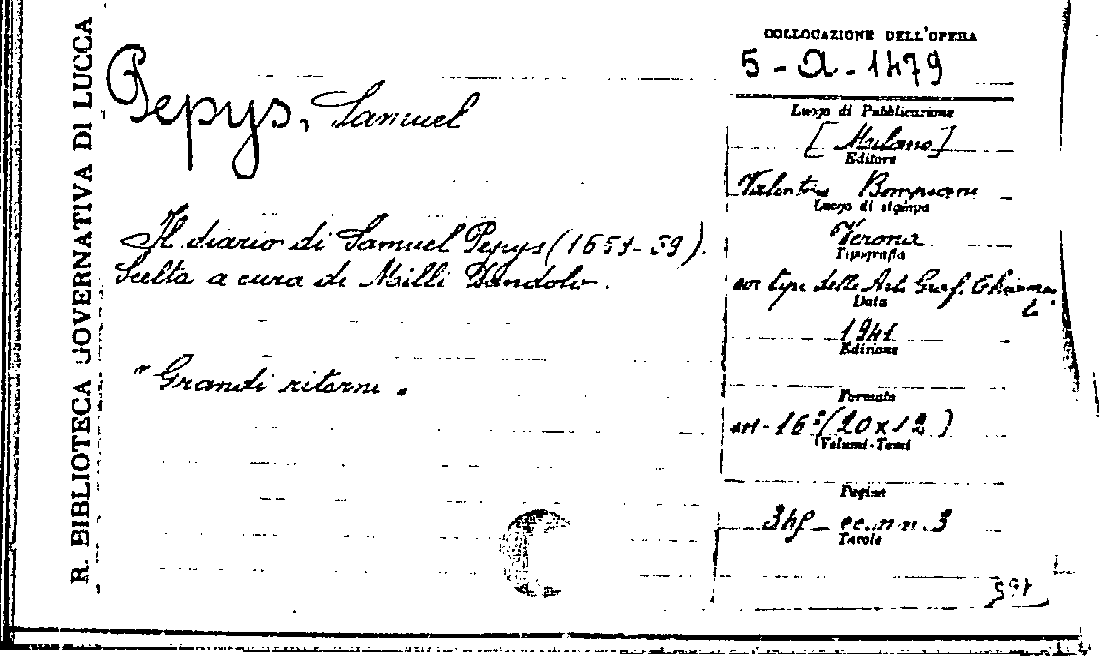 R. BIBLIOTECA GOVERNATIVA DI LUCCA
Pepys, Samuel
Il diario di Samuel Pepys (1651-59).
Scelta a cura di Milli Dandolo.
"Grandi ritorni"
COLLOCAZIONE DELL'OPERA
5-A-1479
Luogo di Pubblicazione
[Milano]
Editore
Valentino Bompiani
Luogo di stampa
Verona
Tipografia
coi tipi delle Arti Graf. Chiamen
Data
1941
Edizione
Formato
in-16° (20x12)
Volumi-Tomi
Pagine
cc.nn. 3
Tavole